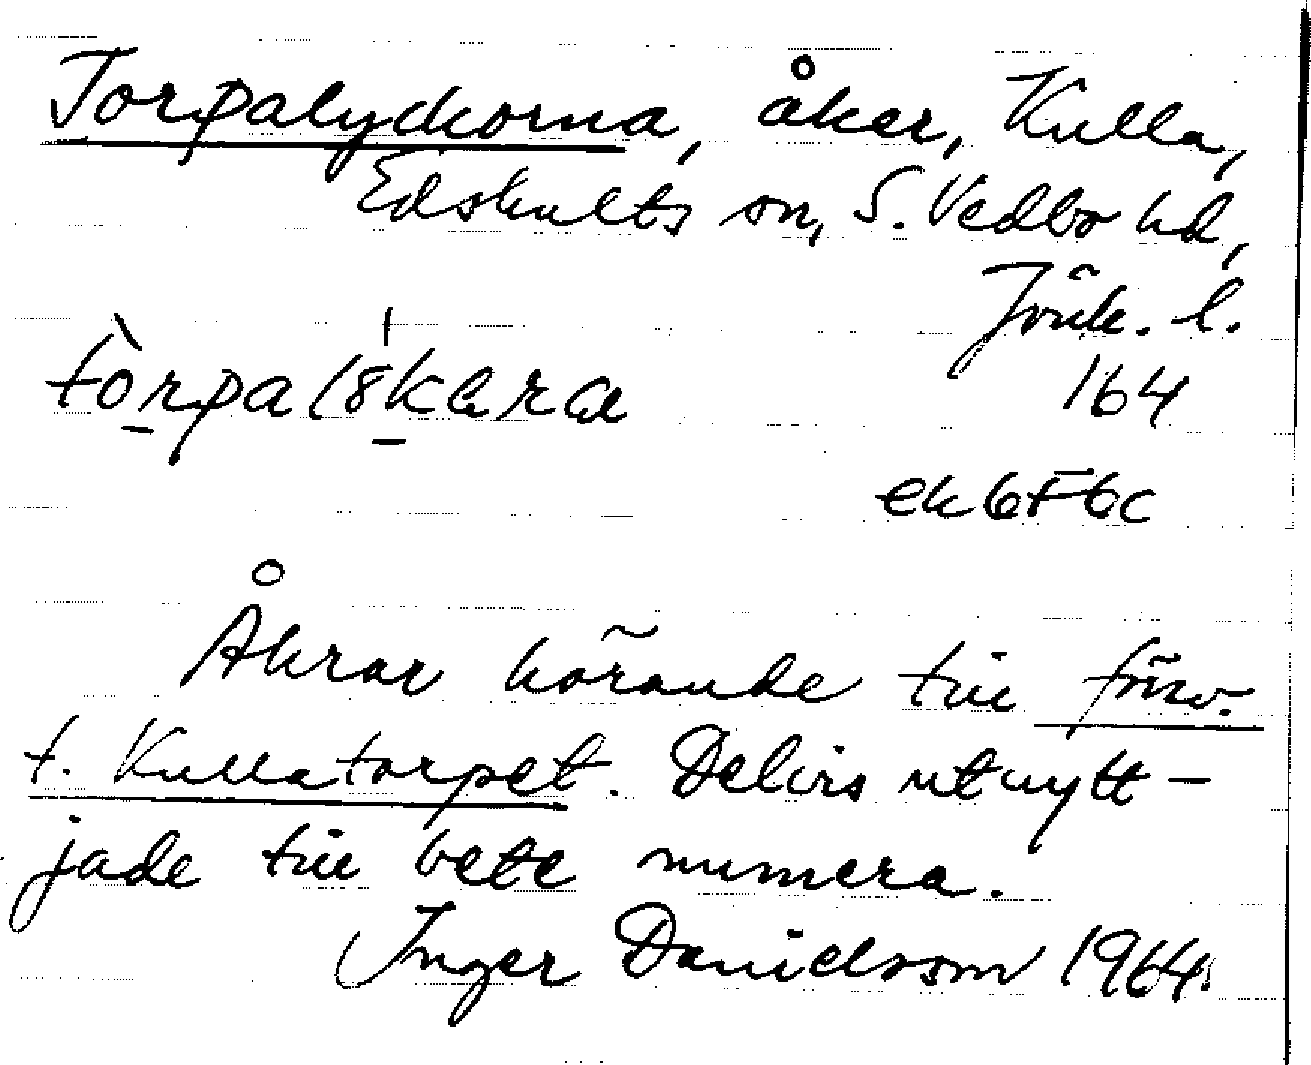 Torpalyckorna, åker, Kulla,
Edshults sn, S. Vedbo hd,
Jönk. l.
164
ek 6F6c
Åkrar hörande till förv.
t. Kullatorpet. Delvis utnytt-
jade till bete numera.
Inger Danielsson 1964.